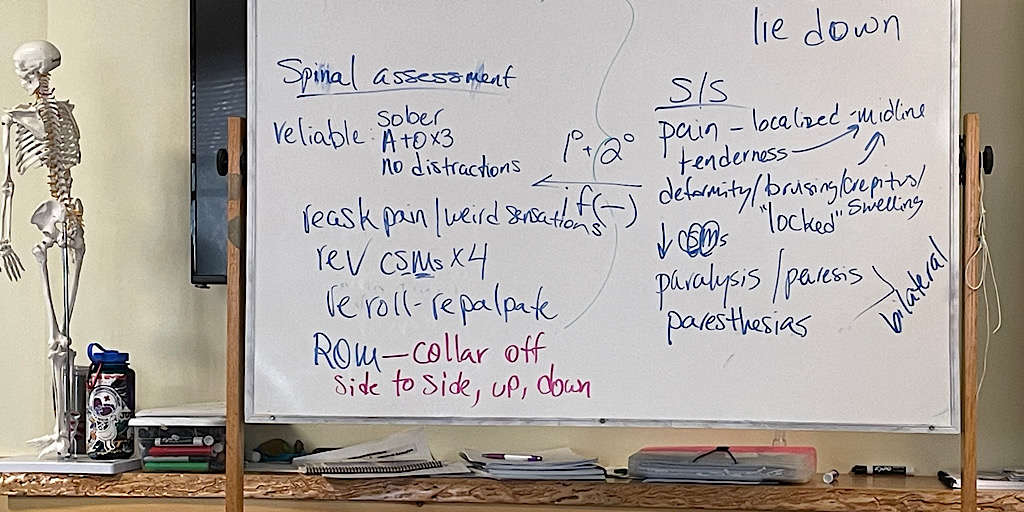 lie down
Spinal assessment
reliable: sober
A+O x3
no distractions
reask pain/weird sensations
rev CSMs x4
re roll-repalpate
ROM—collar off
side to side, up, down
1° + 2°
if (-)
S/S
pain - localized - midline
tenderness
deformity/bruising/crepitus/
"locked" swelling
↓ CSMs
paralysis / paresis
paresthesias
bilateral